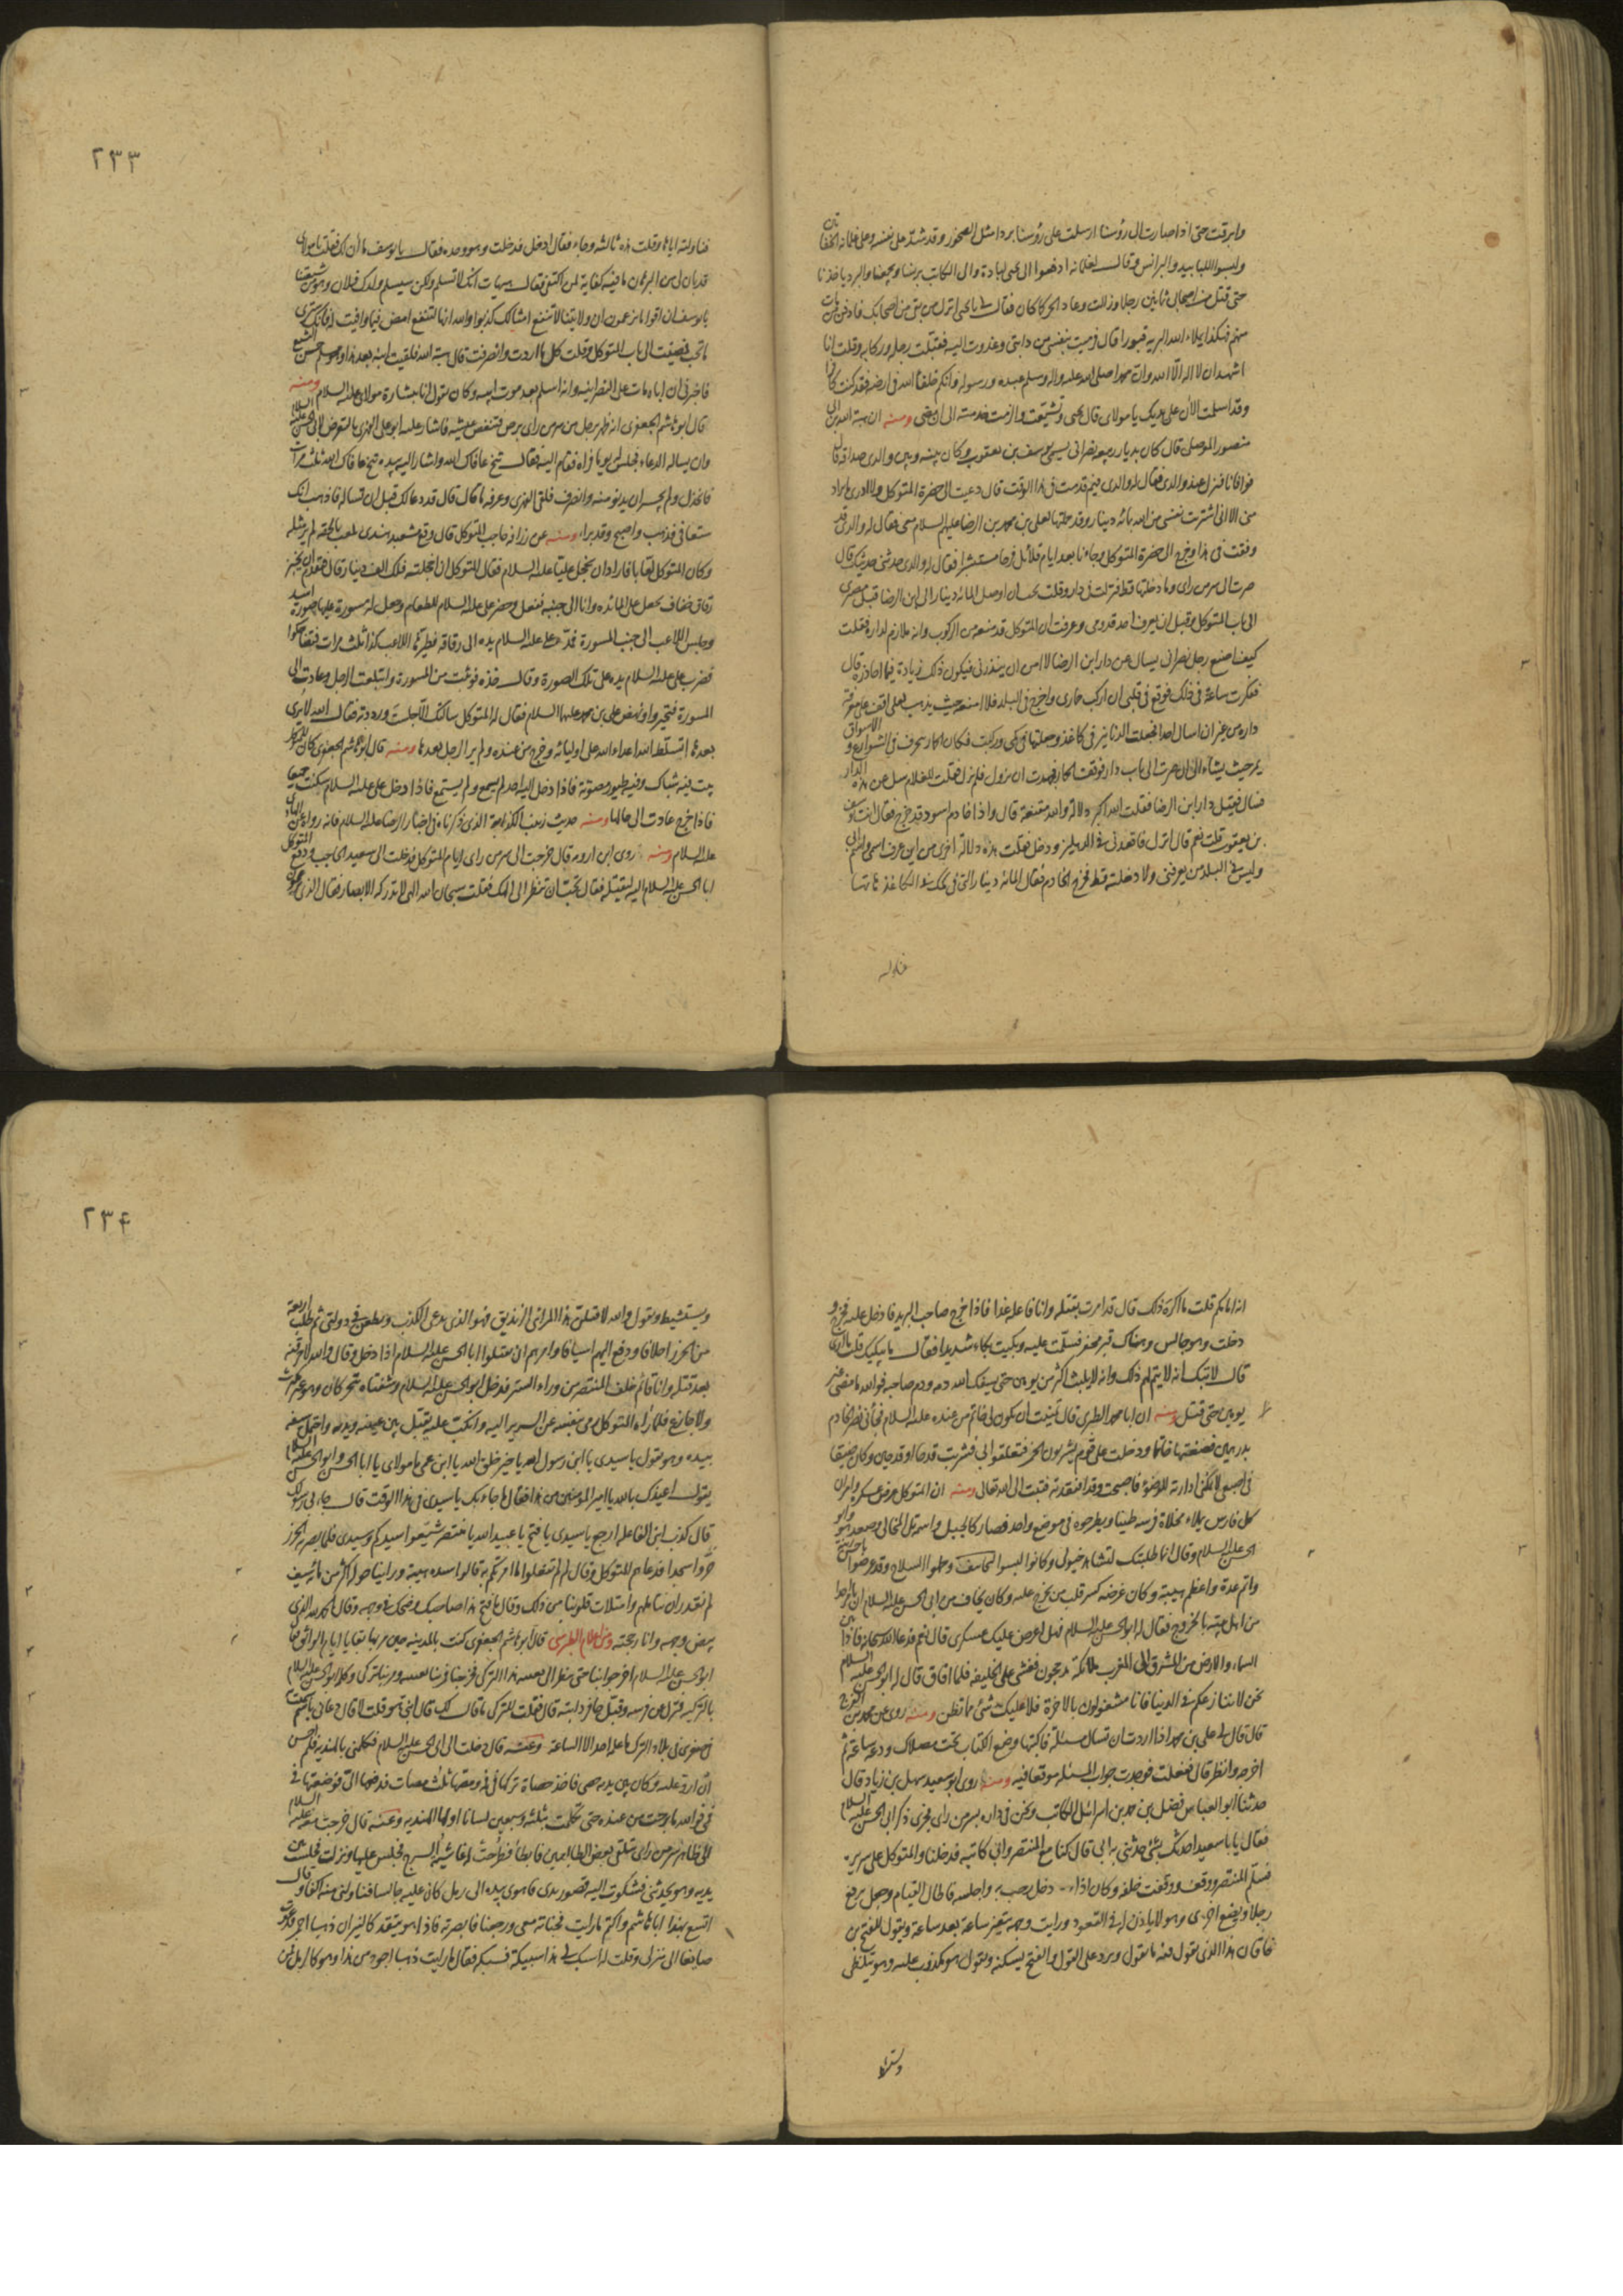 وابرقت حتى اذا صارت الى رؤسنا ارسلت على رؤسنا بردا مثل الصخور وقد شد على نفسه وعلى غلمانه الخفاتين
ولبسوا اللبابيد والبرانس وقال لغلمانه ادفعوا الى يحيى لبادة والى الكاتب برنسا وتجمعنا والبرد ياخذنا
حتى قتل من اصحابى ثمانين رجلا وزالت وعاد الحر كما كان فقال لى يا يحيى انزل من بقى من اصحابك فادفن من مات
منهم فهكذا يملاء الله البرية قبورا قال فرميت بنفسى من دابتى وغدوت اليه فقبلت رجله وركابه وقلت انا
اشهد ان لا اله الا الله وان محمدا صلى الله عليه واله وسلم عبده ورسوله وانكم خلفاء الله فى ارضه فقد كنت كافرا
وقد اسلمت الآن على يديك يا مولاى قال يحيى وتشيعت ولزمت خدمته الى ان مضى ومنه ان هبة الله بن ابى
منصور الموصلى قال كان بديار ربيعه نصرانى يسمى يوسف بن يعقوب وكان بينه وبين والدى صداقة قال
فوافانا فنزل عند والدى فقال له والدى فيم قدمت فى هذا الوقت قال دعيت الى حضرة المتوكل ولا ادرى ما يراد
منى الا انى اشتريت نفسى من الله بمائه دينار وقد حملتها لعلى بن محمد بن الرضا عليهم السلام معى فقال له والدى قد
وفقت فى هذا وخرج الى حضرة المتوكل وجاءنا بعد ايام قلائل فرحا مستبشرا فقال له والدى حدثنى حديثك قال
صرت الى سر من راى وما دخلتها قط فنزلت فى دار وقلت يجب ان اوصل المائه دينار الى ابن الرضا قبل مصيرى
الى باب المتوكل وقبل ان يعرف احد قدومى وعرفت ان المتوكل قد منعه من الركوب وانه ملازم لداره فقلت
كيف اصنع رجل نصرانى يسال عن دار ابن الرضا لا امن ان ينذر بى فيكون ذلك زيادة فيما احاذره قال
ففكرت ساعة فى ذلك فوقع فى قلبى ان اركب حمارى واخرج فى البلد فلا امنعه حيث يذهب لعلى اقف على معرفة
داره من غير ان اسال احدا فجعلت الدنانير فى كاغذ وجعلتها فى كمى وركبت فكان الحمار يتحرق فى الشوارع والاسواق
يمر حيث يشاء الى ان صرت الى باب دار فوقف الحمار فجهدت ان يزول فلم يزل فقلت للغلام سل عن هذه الدار
فسال فقيل دار ابن الرضا فقلت الله اكبر دلالة والله مقنعة قال واذا خادم اسود قد خرج فقال انت يوسف
بن يعقوب قلت نعم قال انزل فاقعدنى فى الدهليز ودخل فقلت هذه دلالة اخرى من اين عرف اسمى واسم ابى
وليس فى البلد من يعرفنى ولا دخلته قط فخرج الخادم فقال المائه دينار التى فى كمك فى الكاغذ هاتها
فناولته
٢٣٣
فناولته اياها وقلت هذه ثالثه وجاء فقال ادخل فدخلت وهو وحده فقال يا يوسف ما آن لك فقلت يا مولاى
قد بان لى من البرهان ما فيه كفاية لمن اكتفى فقال هيهات انك لا تسلم ولكن سيسلم ولدك فلان وهو من شيعتنا
يا يوسف ان اقواما يزعمون ان ولايتنا لا تنفع امثالك كذبوا والله انها لتنفع امض فيما وافيت له فانك سترى
ما تحب فمضيت الى باب المتوكل وقلت كل ما اردت وانصرفت قال هبة الله فلقيت ابنه بعد هذا وهو مسلم حسن التشيع
فاخبرنى ان اباه مات على النصرانيه وانه اسلم بعد موت ابيه وكان يقول انا بشارة مولاى عليه السلام ومنه
قال ابو هاشم الجعفرى انه ظهر برجل من سر من راى برص فتنغص عيشه فاشار عليه ابو على الفهرى بالتعرض لابى الحسن عليه السلام
وان يساله الدعاء فجلس له يوما فراه فقام اليه فقال تنح عافاك الله واشار اليه بيده تنح عافاك الله ثلث مرات
فانخذل ولم يجسر ان يدنو منه وانصرف فلقى الفهرى وعرفه ما قال قال قد دعا لك قبل ان تساله فاذهب انك
ستعافى فذهب واصبح وقد برا ومنه عن زرافه حاجب المتوكل قال وقع مشعبد هندى يلعب بالحقه لم ير مثله
وكان المتوكل لعابا فاراد ان يخجل عليا عليه السلام فقال المتوكل ان اخجلته فلك الف دينار قال فتقدم ان يخبز
رقاق خفاف يجعل على المائده وانا الى جنبه ففعل وحضر على عليه السلام للطعام وجعل له مسورة عليها صورة اسد
وجلس اللاعب الى جنب المسورة فمد على عليه السلام يده الى رقاقه فطيرها اللاعب كذا ثلث مرات فتضاحكوا
فضرب على عليه السلام يده على تلك الصورة وقال خذه فوثبت من المسورة وابتلعت الرجل وعادت الى
المسورة فتحيروا ونهض على بن محمد عليهما السلام فقال له المتوكل سالتك الا جلست ورددته فقال الله لا يرى
بعدها اتسلط اعداء الله على اوليائه وخرج من عنده ولم ير الرجل بعدها ومنه قال ابو هاشم الجعفرى كان للمتوكل
بيت فيه شباك وفيه طيور مصوتة فاذا دخل اليه احد لم يسمع ولم يستمع فاذا دخل على عليه السلام سكنت جميعا
فاذا خرج عادت الى حالها ومنه حديث زينب الكذابة الذى ذكرناه فى اخبار الرضا عليه السلام فانه رواه عن الهادى
عليه السلام ومنه روى ابن ارومه قال خرجت الى سر من راى ايام المتوكل فدخلت الى سعيد الحاجب ودفع المتوكل
ابا الحسن عليه السلام اليه ليقتله فقال تحب ان تنظر الى الهك فقلت سبحان الله الهى لا تدركه الابصار فقال الذى تزعمون
انه امامكم قلت ما اكره ذلك قال قد امرت بقتله وانا فاعله غدا فاذا خرج صاحب البريد فادخل عليه فخرج و
دخلت وهو جالس وهناك قبر يحفر فسلمت عليه وبكيت بكاء شديدا فقال ما يبكيك قلت ما ارى
قال لا تبك انه لا يتم لهم ذلك وانه لا يلبث اكثر من يومين حتى يسفك الله دمه ودم صاحبه فوالله ما مضى غير
يومين حتى قتل ومنه ان ابا محمد الطبرى قال تمنيت ان يكون لى خاتم من عنده عليه السلام فجاءنى نصر الخادم
بدرهمين فصنعتهما خاتما ودخلت على قوم يشربون الخمر فتعلقوا بى فشربت قدحا او قدحين وكان ضيقا
فى اصبعى لا يمكننى ادارته للوضوء فاصبحت وقد افتقدته فتبت الى الله تعالى ومنه ان المتوكل عرض عسكره وامر ان
كل فارس يملاء مخلاة فرسه طينا ويطرحوه فى موضع واحد فصار كالجبل واسمه تل المخالى وصعد هو وابو
الحسن عليه السلام وقال انما طلبتك لتشاهد خيولى وكانوا لبسوا التجافيف وحملوا السلاح وقد عرضوا باحسن زينة
واتم عدة واعظم هيبة وكان غرضه كسر قلب من يخرج عليه وكان يخاف من ابى الحسن عليه السلام ان يامر احدا
من اهل بيته بالخروج فقال له ابو الحسن عليه السلام فهل اعرض عليك عسكرى قال نعم فدعا الله سبحانه فاذا بين
السماء والارض من المشرق الى المغرب ملائكة مدججون فغشى على الخليفه فلما افاق قال له ابو الحسن عليه السلام
نحن لا ننازعكم فى الدنيا فانا مشغولون بالاخرة فلا عليك شئ مما تظن ومنه روى عن محمد بن الفرج
قال قال لى على بن محمد اذا اردت ان تسال مسئلة فاكتبها وضع الكتاب تحت مصلاك ودعه ساعة ثم
اخرجه وانظر قال ففعلت فوجدت جواب المسئلة موقعا فيه ومنه روى ابو سعيد سهل بن زياد قال
حدثنا ابو العباس فضل بن احمد بن اسرائيل الكاتب ونحن فى داره بسر من راى فجرى ذكر ابى الحسن عليه السلام
فقال يا ابا سعيد احدثك بشئ حدثنى به ابى قال كنا مع المنتصر وابى كاتبه فدخلنا والمتوكل على سريره
فسلم المنتصر ووقف ووقفت خلفه وكان اذا دخل رحب به واجلسه فاطال القيام وجعل يرفع
رجلا ويضع اخرى وهو لا ياذن له فى القعود ورايت وجهه يتغير ساعة بعد ساعة ويقول للفتح بن
خاقان هذا الذى يقول فيه ما يقول ويرد على القول والفتح يسكنه ويقول هو مكذوب عليه وهو يتلظى
٢٣٤
ويستشيط ويقول والله لاقتلن هذا المرائى الزنديق فهو الذى يدعى الكذب ويطعن فى دولتى ثم طلب اربعة
من الخزر اجلافا ودفع اليهم اسيافا وامرهم ان يقتلوا ابا الحسن عليه السلام اذا دخل وقال والله لاحرقنه
بعد قتله وانا قائم خلف المنتصر من وراء الستر فدخل ابو الحسن عليه السلام وشفتاه تتحركان وهو غير مكترث
ولا جازع فلما راه المتوكل رمى بنفسه عن السرير اليه وانكب عليه يقبل بين عينيه ويديه واحتمل سيفه
بيده وهو يقول يا سيدى يا ابن رسول الله يا خير خلق الله يا ابن عمى يا مولاى يا ابا الحسن وابو الحسن عليه السلام
يقول اعيذك بالله يا امير المؤمنين من هذا فقال ما جاء بك يا سيدى فى هذا الوقت قال جاءنى رسولك
قال كذب ابن الفاعله ارجع يا سيدى يا فتح يا عبيد الله يا منتصر شيعوا سيدكم وسيدى فلما بصر به الخزر
خروا سجدا فدعاهم المتوكل وقال لم لم تفعلوا ما امرتكم به قالوا شدة هيبته وراينا حوله اكثر من مائة سيف
لم نقدر ان نتاملهم وامتلات قلوبنا من ذلك وقال يا فتح هذا صاحبك وضحك فى وجهه وقال الحمد لله الذى
بيض وجهه وانار حجته ومن اعلام الطبرسى قال ابو هاشم الجعفرى كنت بالمدينه حين مر بها بغا ايام الواثق فقال
ابو الحسن عليه السلام اخرجوا بنا حتى ننظر الى تعبية هذا التركى فخرجنا فمرت بنا تعبيته ومر بنا تركى وكلمه ابو الحسن عليه السلام
بالتركيه فنزل عن فرسه وقبل حافر دابته قال فقلت للتركى ما قال لك قال انبى هو قلت لا قال دعانى باسم سميت
به فى صغرى فى بلاد الترك ما علمه احد الا الساعة وعنه قال دخلت الى ابى الحسن عليه السلام فكلمنى بالهنديه فلم احسن
ان ارد عليه وكان بين يديه حصى فاخذ حصاة تركها فى فيه ومصها ثلث مصات فدفعها الى فوضعتها فى
فمى فوالله ما برحت من عنده حتى تكلمت بثلثه وسبعين لسانا اولها الهنديه وعنه قال خرجت معه عليه السلام
الى ظاهر سر من راى نتلقى بعض الطالبيين فابطا فطرحت له غاشية السرج فجلس عليها ونزلت فجلست بين
يديه وهو يحدثنى فشكوت اليه قصور يدى فاهوى بيده الى رمل كان عليه جالسا فناولنى منه اكفا وقال
اتسع بهذا ابا هاشم واكتم ما رايت فخباته معى ورجعنا فابصرته فاذا هو يتقد كالنيران ذهبا احمر فدعوت
صائغا الى منزلى وقلت له اسبك لى هذا سبيكة فسبكه فقال ما رايت ذهبا اجود من هذا وهو كالرمل فمن